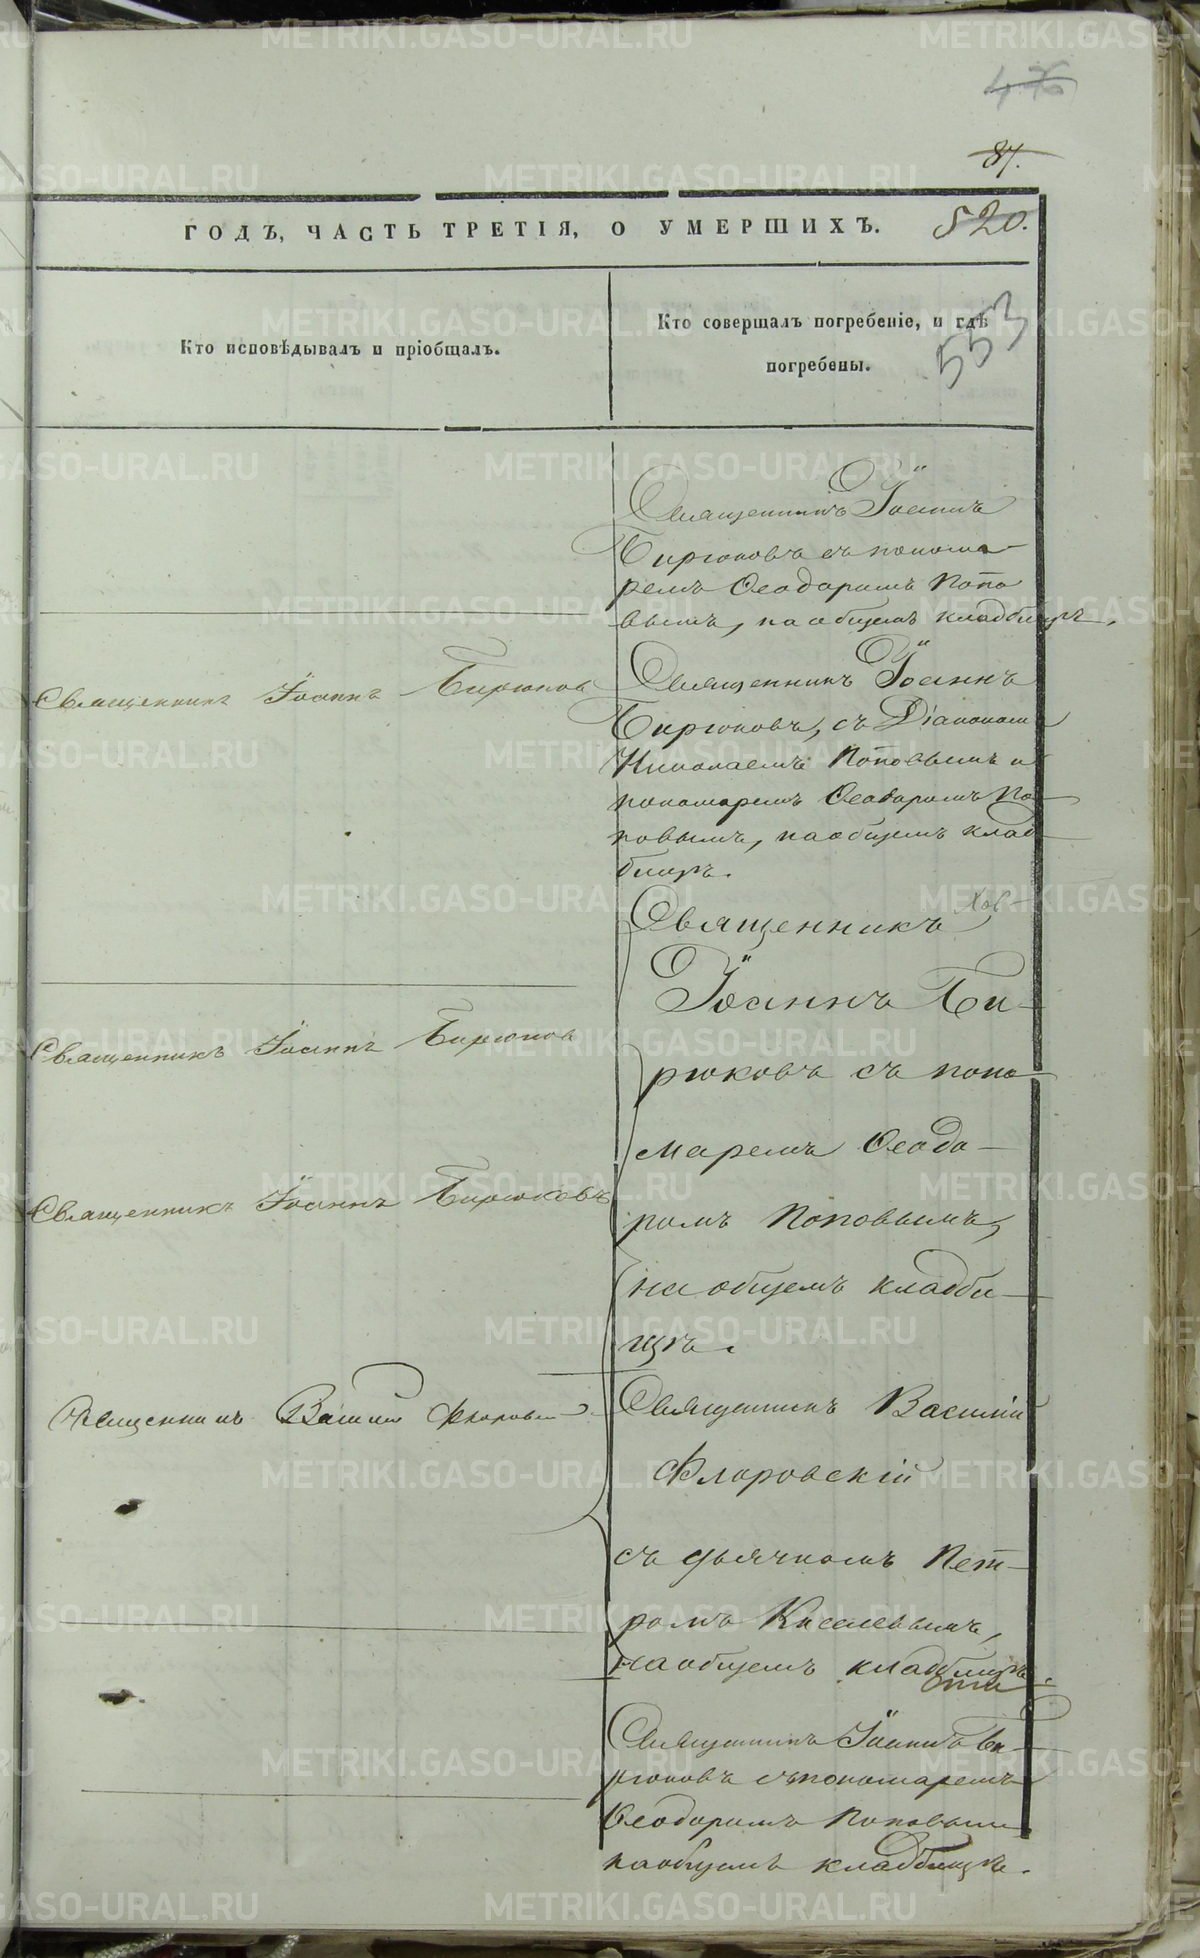 87.
ГОДЪ, ЧАСТЬ ТРЕТІЯ, О УМЕРШИХЪ. 520.
553
Кто исповѣдывалъ и пріобщалъ.
Кто совершалъ погребеніе, и гдѣ
погребены.
Священникъ Іоаннъ
Бирюковъ съ понома-
ремъ Ѳеодоромъ Попо
вымъ, на общемъ кладбищѣ.
Священникъ Іоаннъ Бирюковъ
Священникъ Іоаннъ
Бирюковъ, съ Діакономъ
Николаемъ Поповымъ и
пономаремъ Ѳеодоромъ По-
повымъ, на общемъ клад-
бищѣ.
Священникъ Іоаннъ Бирюков
Священникъ Іоаннъ Бирюковъ
Священникъ
Іоаннъ Би-
рюковъ съ поно-
маремъ Ѳеодо-
ромъ Поповымъ,
на общемъ кладби-
щѣ.
Священникъ Василій
Священникъ Василій
Флоровскій
съ дьячкомъ Пет-
ромъ Киселевымъ,
на общемъ кладбищѣ.
Священникъ Іоаннъ Би-
рюковъ съ пономаремъ
Ѳеодоромъ Поповым
на общемъ кладбищѣ.
METRIKI.GASO-URAL.RU